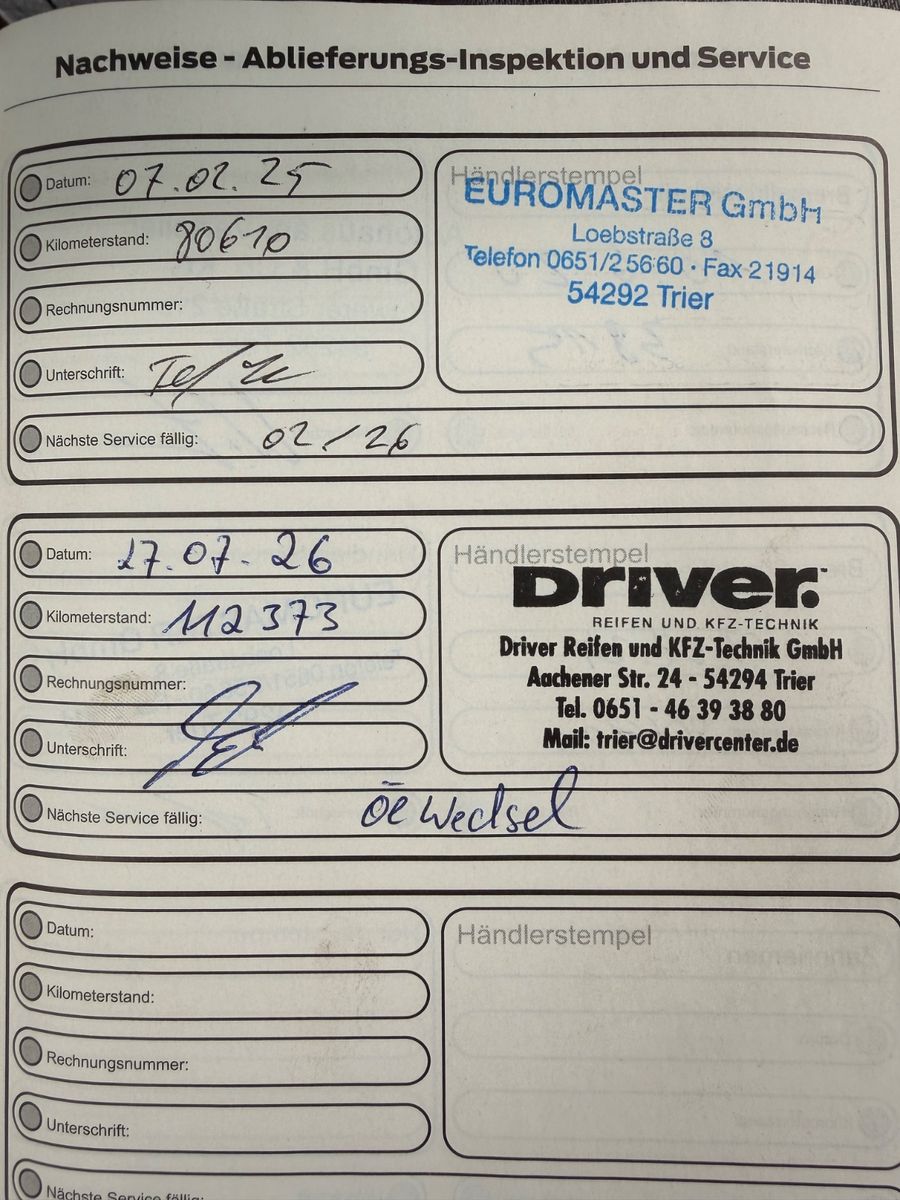 Nachweise - Ablieferungs-Inspektion und Service
Datum: 07.02.25
Kilometerstand: 80610
Rechnungsnummer:
Unterschrift:
Nächste Service fällig: 02/26
Händlerstempel
EUROMASTER GmbH
Loebstraße 8
Telefon 0651/2 56 60 · Fax 21914
54292 Trier
Datum: 27.07.26
Kilometerstand: 112373
Rechnungsnummer:
Unterschrift:
Nächste Service fällig: Öl Wechsel
Händlerstempel
DRiver.
REIFEN UND KFZ-TECHNIK
Driver Reifen und KFZ-Technik GmbH
Aachener Str. 24 - 54294 Trier
Tel. 0651 - 46 39 38 80
Mail: trier@drivercenter.de
Datum:
Kilometerstand:
Rechnungsnummer:
Unterschrift:
Nächste Service fällig:
Händlerstempel